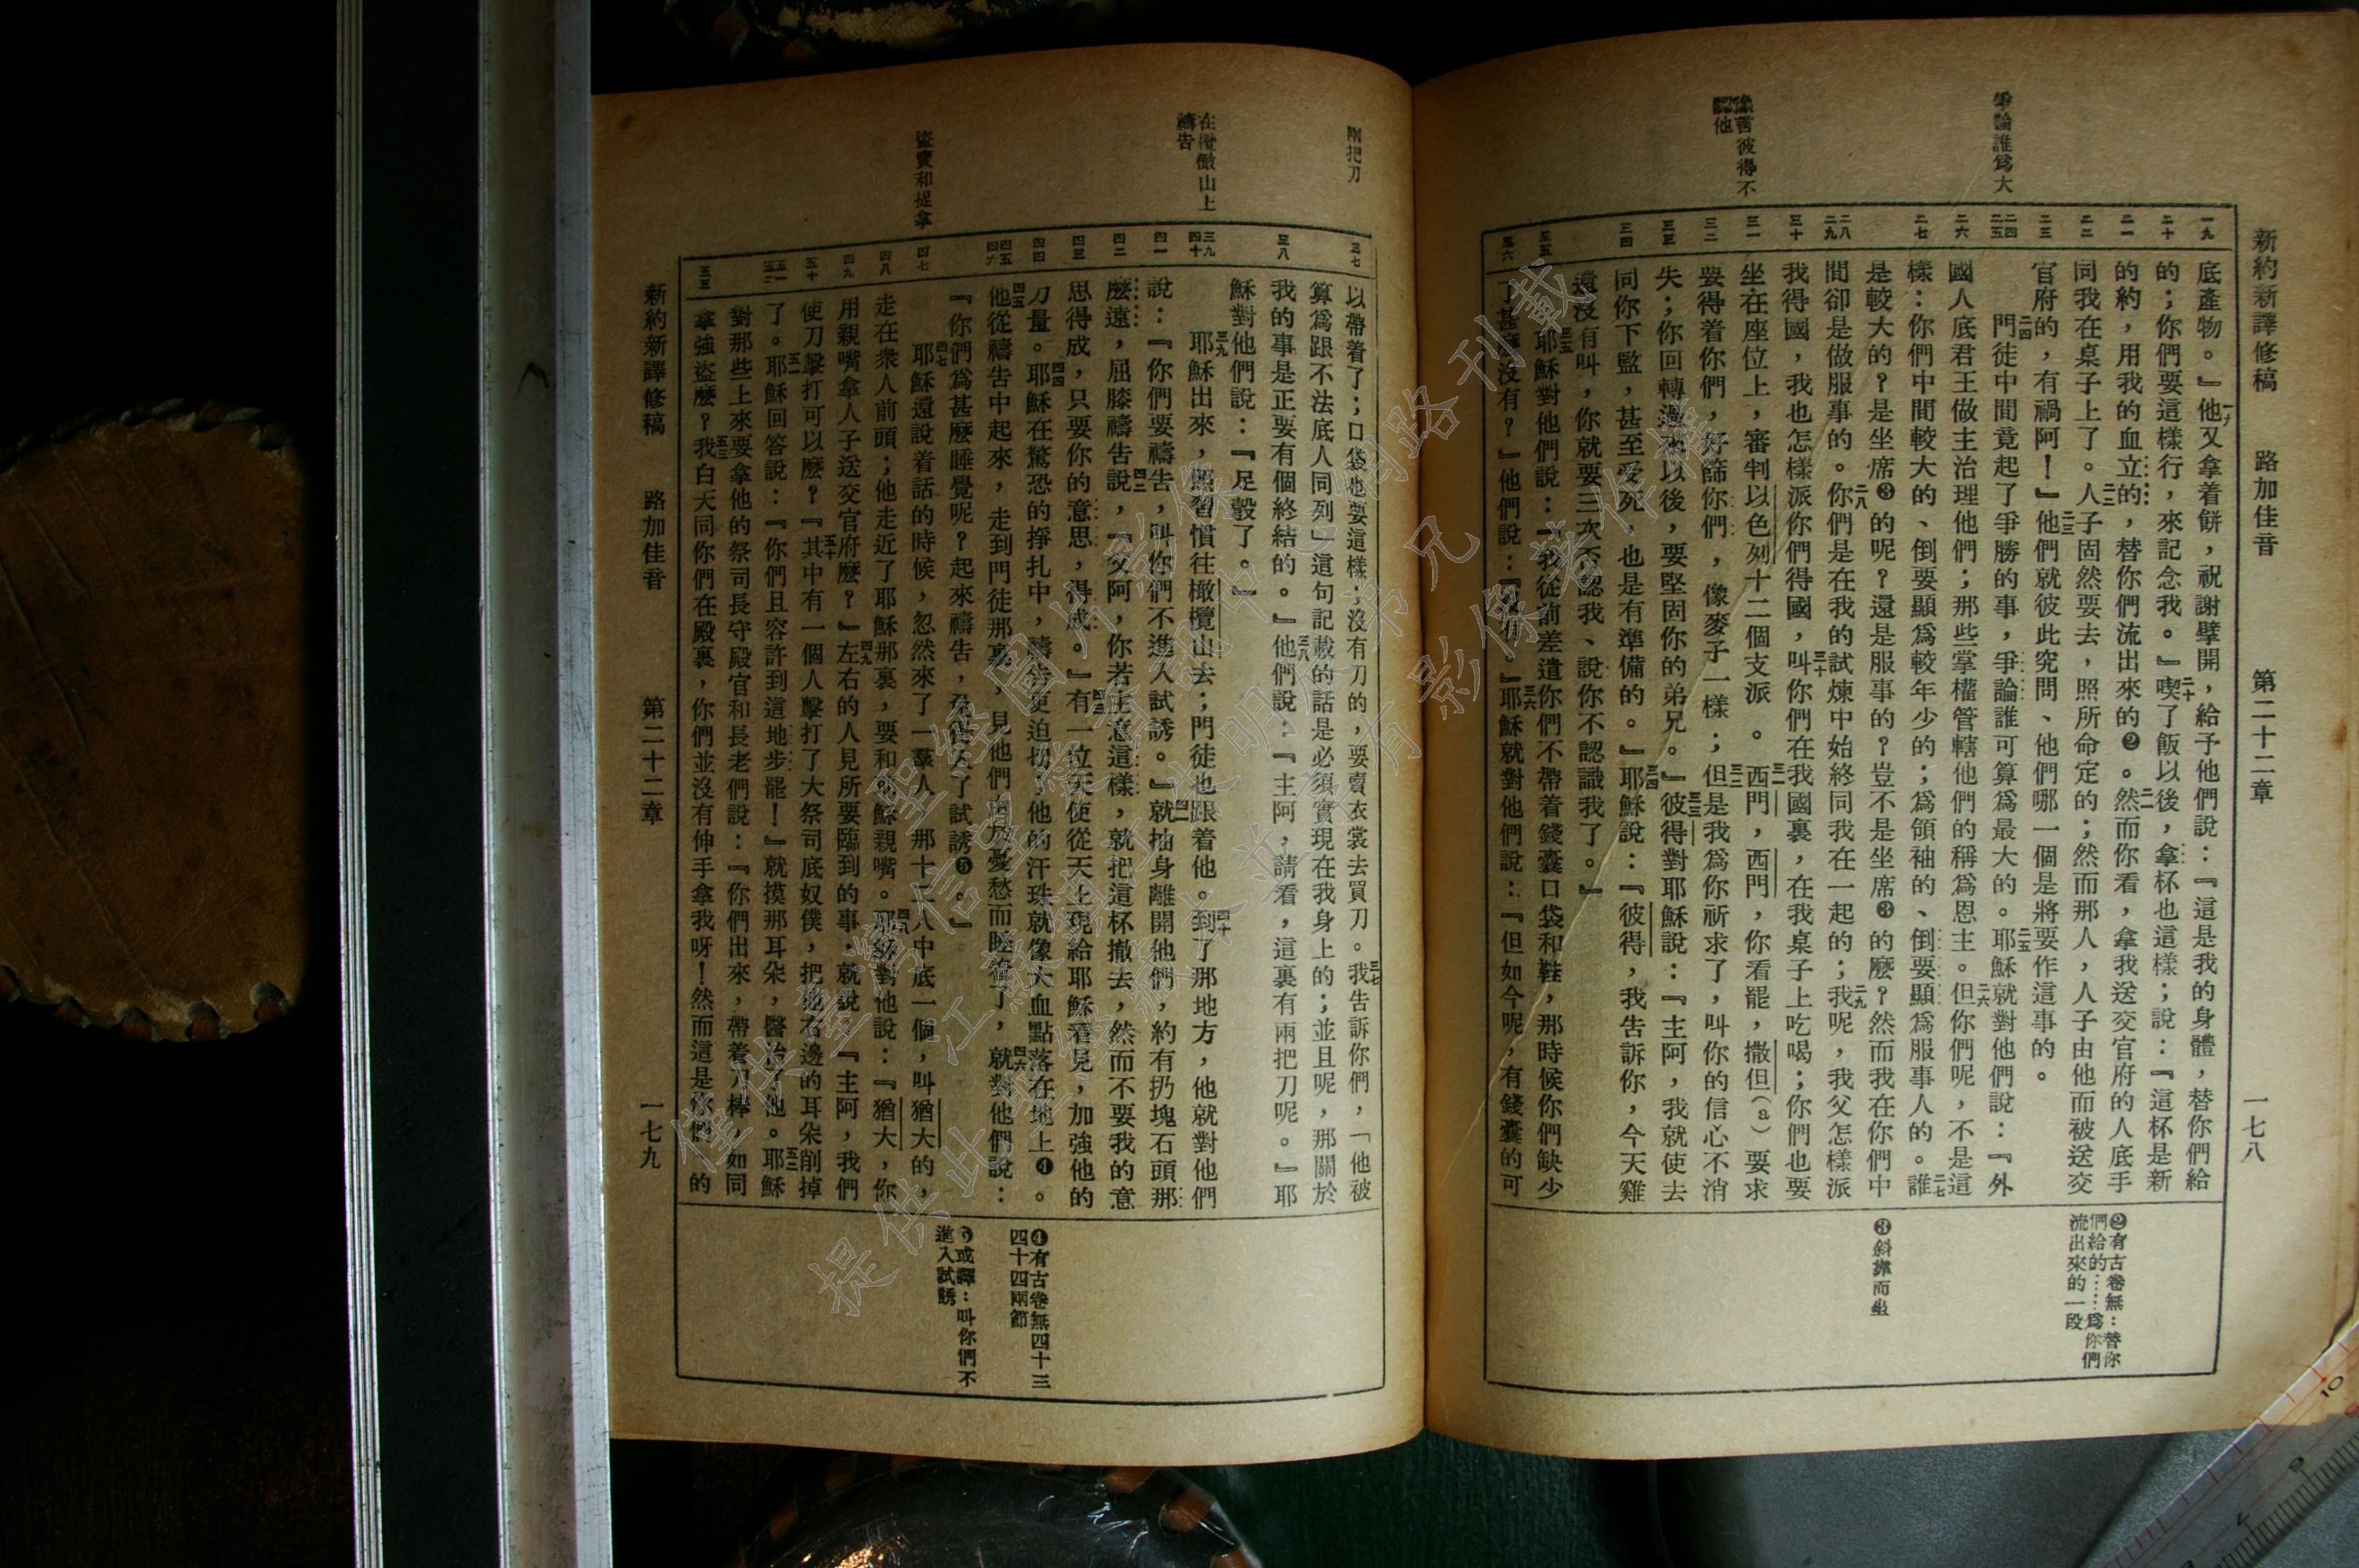 新約新譯修稿 路加佳音 第二十二章 一七八
爭論誰爲大
彼得不
認他
一九
二十
二一
二二
二三
二四
二五
二六
二七
二八
二九
三十
三一
三二
三三
三四
三五
三六
底產物。』他一九又拿着餅，祝謝擘開，給予他們說：『這是我的身體，替你們給
的；你們要這樣行，來記念我。』喫二十了飯以後，拿杯也這樣；說：『這杯是新
的約，用我的血立的，替你們流出來的❷。然二一而你看，拿我送交官府的人底手
同我在桌子上了。人二二子固然要去，照所命定的；然而那人，人子由他而被送交
官府的，有禍阿！』他二三們就彼此究問、他們哪一個是將要作這事的。
門二四徒中間竟起了爭勝的事，爭論誰可算爲最大的。耶二五穌就對他們說：『外
國人底君王做主治理他們；那些掌權管轄他們的稱爲恩主。但二六你們呢，不是這
樣：你們中間較大的、倒要顯爲較年少的；爲領袖的、倒要顯爲服事人的。誰二七
是較大的？是坐席❸的呢？還是服事的？豈不是坐席❸的麽？然而我在你們中
間卻是做服事的。你二八們是在我的試煉中始終同我在一起的；我二九呢，我父怎樣派
我得國，我也怎樣派你們得國，叫三十你們在我國裏，在我桌子上吃喝；你們也要
坐在座位上，審判以色列十二個支派。西三一門，西門，你看罷，撒但(a)要求
要得着你們，好篩你們，像麥子一樣；但三二是我爲你祈求了，叫你的信心不消
失；你回轉過來以後，要堅固你的弟兄。』彼三三得對耶穌說：『主阿，我就使去
同你下監，甚至受死，也是有準備的。』耶三四穌說：『彼得，我告訴你，今天雞
還沒有叫，你就要三次否認我、說你不認識我了。』
耶三五穌對他們說：『我從前差遣你們不帶着錢囊口袋和鞋，那時候你們缺少
了甚麽沒有？』他們說：『沒有。』耶三六穌就對他們說：『但如今呢，有錢囊的可
❷有古卷無：替你
們給的……爲你們
流出來的一段
❸斜靠而坐
兩把刀
在橄欖山上
禱告
盜賣和捉拿
三七
三八
三九
四十
四一
四二
四三
四四
四五
四六
四七
四八
四九
五十
五一
五二
五三
以帶着了；口袋也要這樣；沒有刀的，要賣衣裳去買刀。我三七告訴你們，「他被
算爲跟不法底人同列」這句記載的話是必須實現在我身上的；並且呢，那關於
我的事是正要有個終結的。』他三八們說：『主阿，請看，這裏有兩把刀呢。』耶
穌對他們說：『足彀了。』
耶三九穌出來，照習慣往橄欖山去；門徒也跟着他。到四十了那地方，他就對他們
說：『你們要禱告，叫你們不進入試誘。』就四一抽身離開他們，約有扔塊石頭那
麽遠，屈膝禱告說，四二『父阿，你若主意這樣，就把這杯撤去，然而不要我的意
思得成，只要你的意思，得成。』有四三一位天使從天上現給耶穌看見，加強他的
力量。耶四四穌在驚恐的掙扎中，禱告更迫切；他的汗珠就像大血點落在地上❹。
他四五從禱告中起來，走到門徒那裏，見他們因爲憂愁而睡着了，就四六對他們說：
『你們爲甚麽睡覺呢？起來禱告，免得入了試誘❺。』
耶四七穌還說着話的時候，忽然來了一羣人，那十二人中底一個，叫猶大的，
走在衆人前頭；他走近了耶穌那裏，要和耶穌親嘴。耶四八穌對他說：『猶大，你
用親嘴拿人子送交官府麽？』左四九右的人見所要臨到的事，就說：『主阿，我們
使刀擊打可以麽？』其五十中有一個人擊打了大祭司底奴僕，把他右邊的耳朶削掉
了。耶五一穌回答說：『你們且容許到這地步罷！』就摸那耳朶，醫治了他。耶五二穌
對那些上來要拿他的祭司長守殿官和長老們說：『你們出來，帶着刀棒，如同
拿強盜麽？我五三白天同你們在殿裏，你們並沒有伸手拿我呀！然而這是你們的
❹有古卷無四十三
四十四兩節
❺或譯：叫你們不
進入試誘
新約新譯修稿 路加佳音 第二十二章 一七九